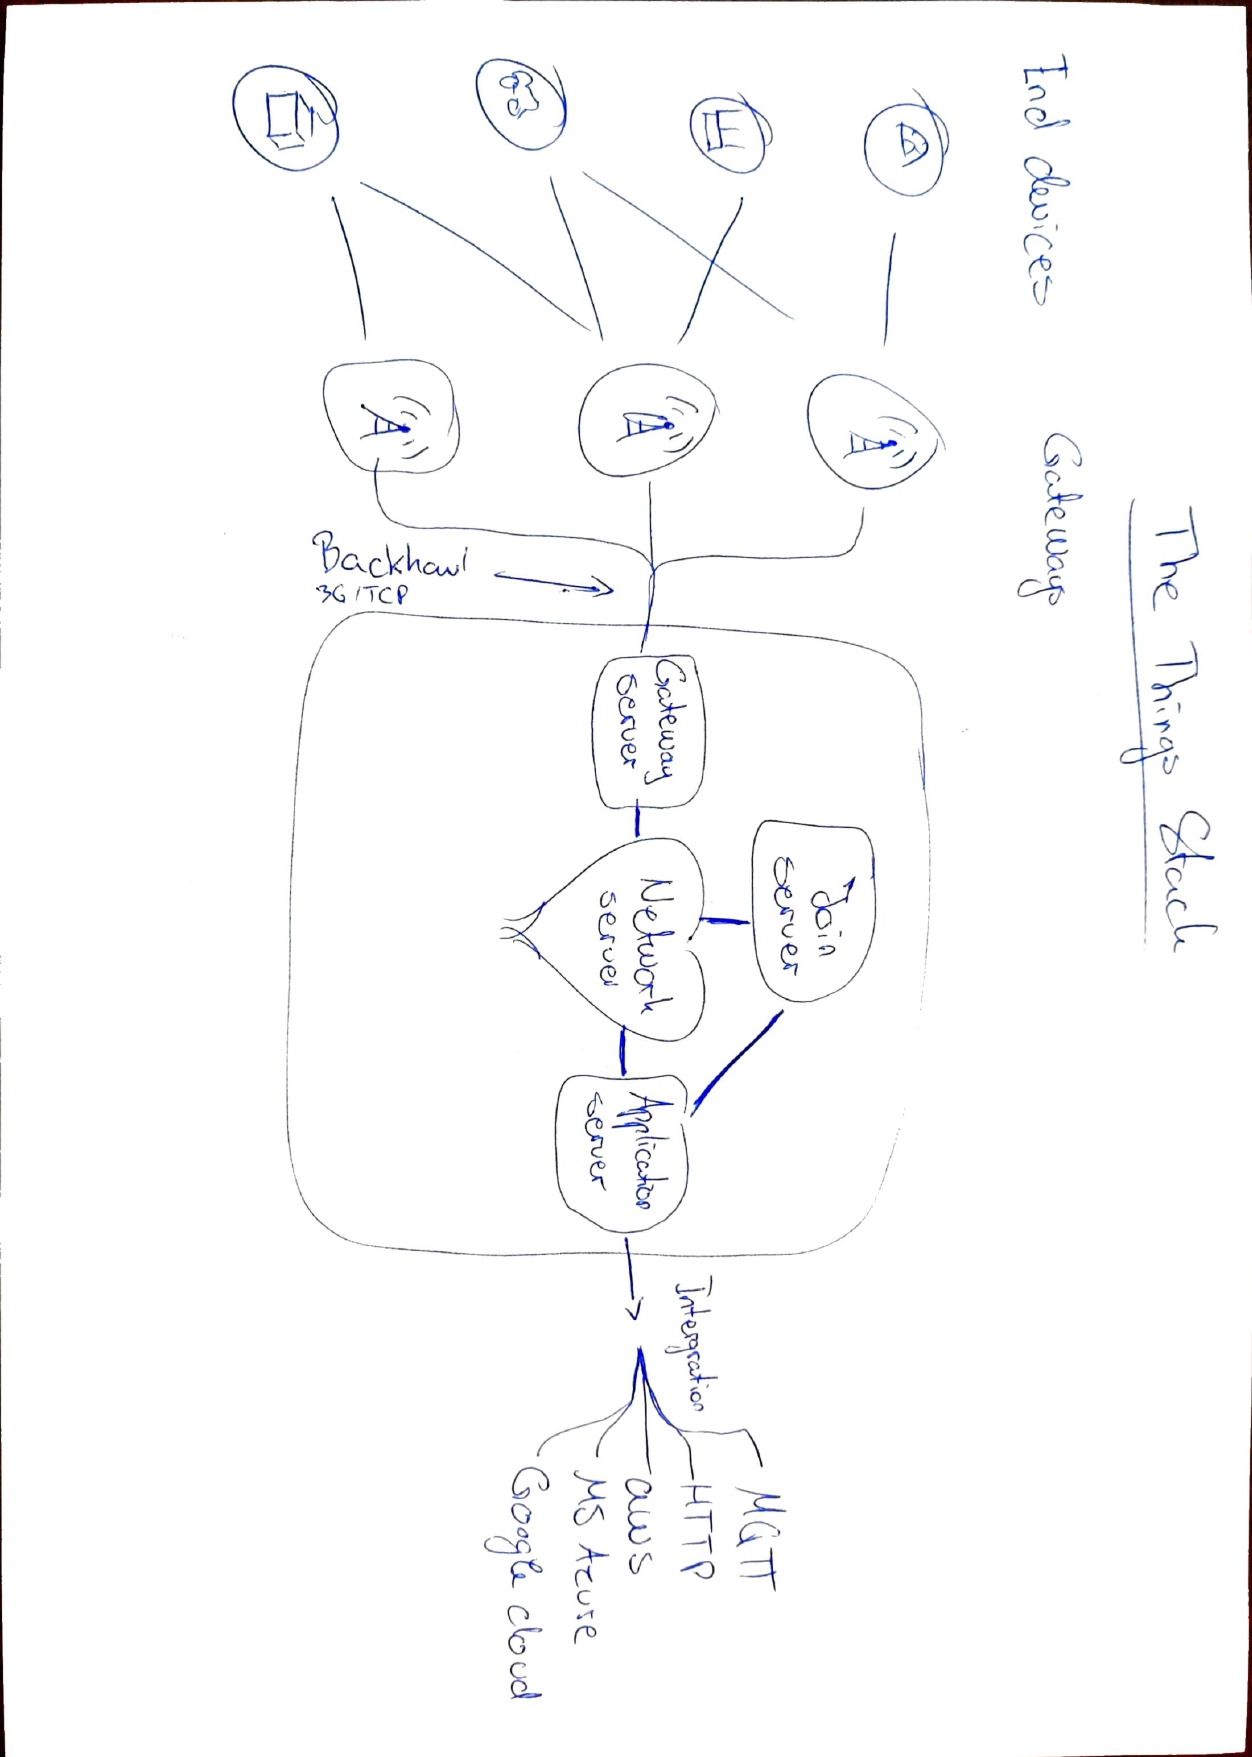 The Things Stack
Ind devices
Gateways
Backhaul
3G/TCP
Gateway
server
Join
server
Network
server
Application
server
Intergration
MQTT
HTTP
aws
MS Azure
Google cloud